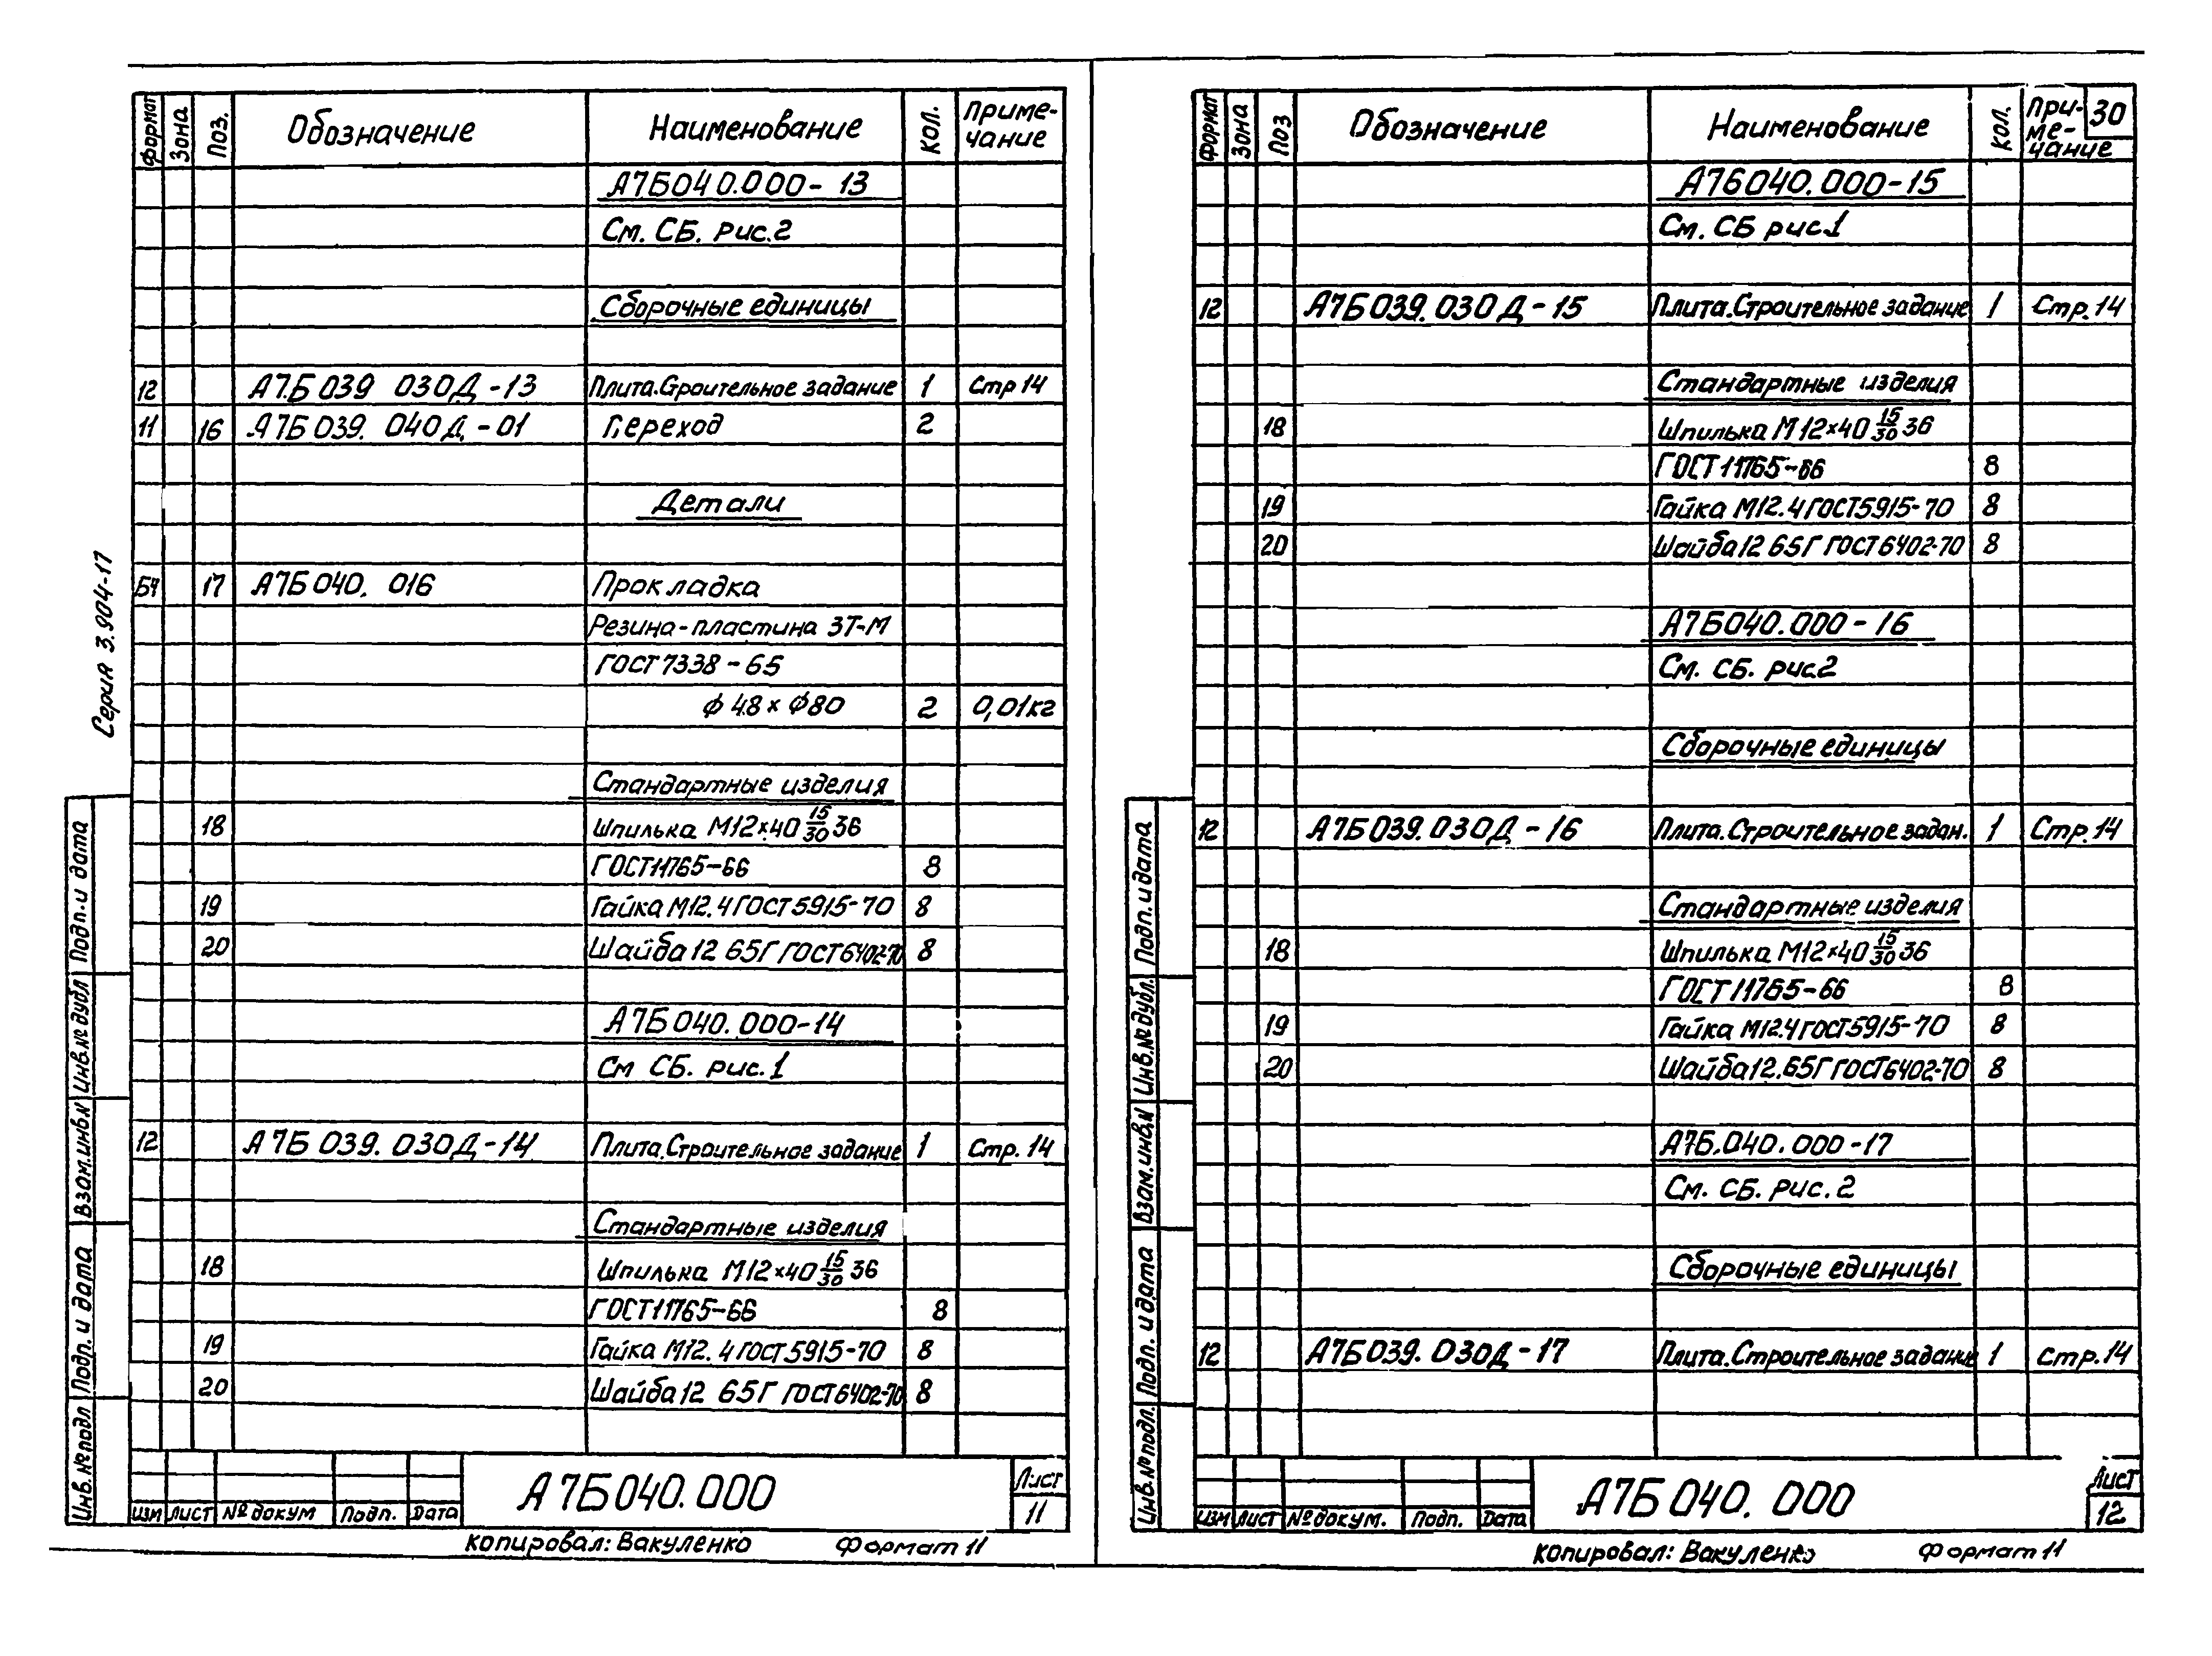 Формат Зона Поз. Обозначение Наименование Кол. Приме-
чание
А7Б040.000-13
См. СБ. рис.2
Сборочные единицы
12 А7.Б039 030Д-13 Плита.Сроительное задание 1 Стр 14
11 16 А7Б039. 040Д-01 Переход 2
Детали
БЧ 17 А7Б040. 016 Прокладка
Резина-пластина 3Т-М
ГОСТ7338-65
ф48×ф80 2 0,01кг
Стандартные изделия
18 Шпилька М12×40 15/30 36
ГОСТ11765-66 8
19 Гайка М12.4 ГОСТ5915-70 8
20 Шайба12 65Г ГОСТ6402-70 8
А7Б040.000-14
См СБ. рис.1
12 А7Б039.030Д-14 Плита.Строительное задание 1 Стр.14
Стандартные изделия
18 Шпилька М12×40 15/30 36
ГОСТ11765-66 8
19 Гайка М12.4 ГОСТ5915-70 8
20 Шайба12 65Г ГОСТ6402-70 8
Серия 3.904-17
Подп. и дата
Инв.№ дубл
Взам.инв.№
Подп. и дата
Инв.№подл
Изм Лист № докум Подп. Дата
А7Б040.000
Лист
11
копировал: Вакуленко Формат 11
Формат Зона Поз Обозначение Наименование Кол. При-
ме-
чание
30
А7Б040.000-15
См. СБ рис.1
12 А7Б039.030Д-15 Плита.Строительное задание 1 Стр.14
Стандартные изделия
18 Шпилька М12×40 15/30 36
ГОСТ11765-66 8
19 Гайка М12.4 ГОСТ5915-70 8
20 Шайба12 65Г ГОСТ6402-70 8
А7Б040.000-16
См. СБ. рис.2
Сборочные единицы
12 А7Б039.030Д-16 Плита.Строительное задан. 1 Стр.14
Стандартные изделия
18 Шпилька М12×40 15/30 36
ГОСТ11765-66 8
19 Гайка М12.4 ГОСТ5915-70 8
20 Шайба12.65Г ГОСТ6402-70 8
А7Б.040.000-17
См. СБ. рис.2
Сборочные единицы
12 А7Б039.030Д-17 Плита.Строительное задание 1 Стр.14
Подп. и дата
Инв.№ дубл.
Взам.инв.№
Подп. и дата
Инв.№подл.
Изм Лист № докум. Подп. Дата
А7Б040.000
Лист
12
копировал: Вакуленко Формат 11